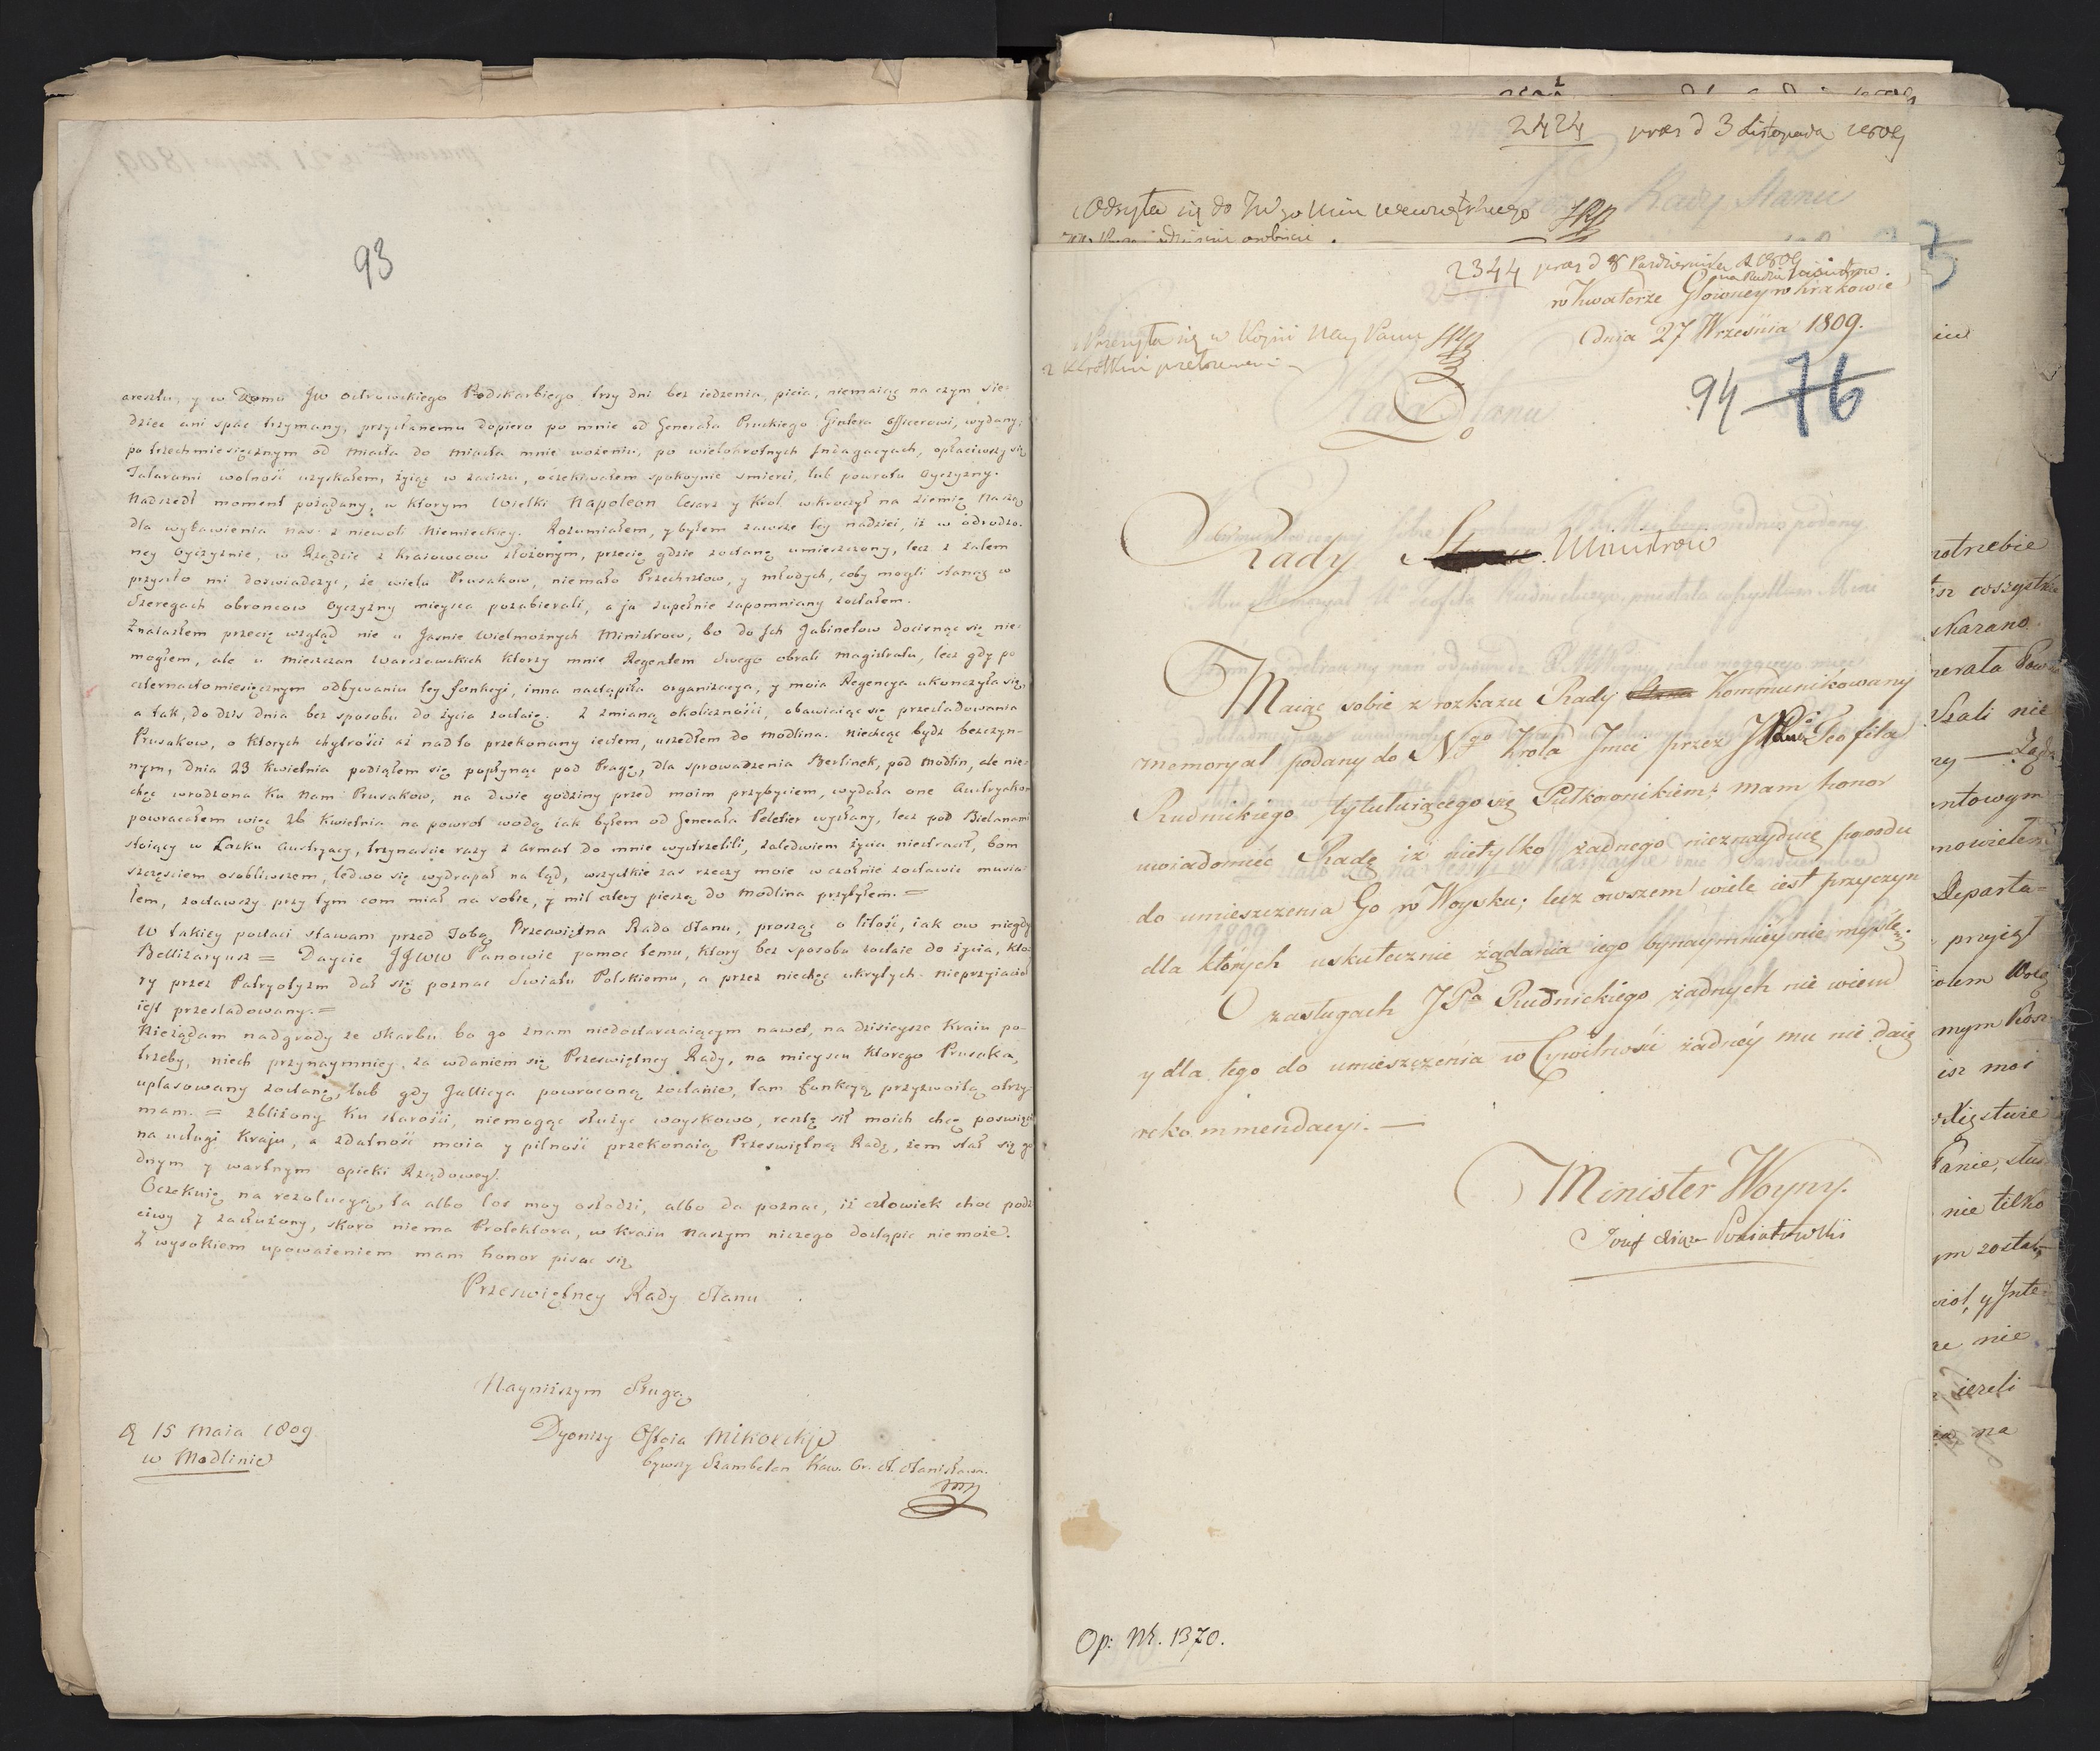 93
aresztu, y w Domu JW Ostrowskiego Podskarbiego trzy dni bez iedzenia, picia, niemaiąc na czym sie-
dziec ani spac trzymany, przysłanemu dopiero po mnie od Generała Pruskiego Officerowi, wydany,
po trzechmiesięcznym od miasta do miasta mnie wożeniu, po wielokrotnych Indagacyach, opłaciwszy się
Talarami wolność uzyskałem, żyiąc w zaciszu, oczekiwałem spokoynie smierci, lub powrotu Oyczyzny.
Nadszedł moment pożądany, w ktorym Wielki Napoleon Cesarz y Krol wkroczył na ziemię Naszą
dla wybawienia nas z niewoli Niemieckiey. Rozumiałem, y byłem zawsze tey nadziei, iż w odrodzo-
ney Oyczyznie, w Rządzie z Kraiowcow złożonym, przecię gdzie zostanę umieszczony, lecz z żalem
przyszło mi doswiadczyc, że wielu Prusakow, niemało Przechrztow, y młodych, coby mogli stanąc w
Szeregach obroncow Oyczyzny mieysca pozabierali, a ja zupełnie zapomniany zostałem.
Znalazłem przecię wzgląd nie u Jasnie Wielmożnych Ministrow, bo do Jch Gabinetow docisnąc się nie-
mogłem, ale u Mieszczan Warszawskich ktorzy mnie Regentem Swego obrali Magistratu, lecz gdy po
czternastomiesięcznym odbywaniu tey fonkcyi, inna nastąpiła organizacya, y moia Regencya ukonczyła się,
a tak, do dzis dnia bez sposobu do życia zostaię. Z zmianą okoliczności, obawiaiąc się przesladowania
Prusakow, o ktorych chytrości aż nadto przekonany iestem, uszedłem do Modlina. Niechcąc bydz bezczyn-
nym, dnia 23 Kwietnia podiąłem się popłynąc pod Pragę, dla sprowadzenia Berlinek, pod Modlin, ale nie-
chęc wrodzona Ku nam Prusakow, na dwie godziny przed moim przybyciem, wydała one Austryakom
powracałem więc 26 Kwietnia na powrot wodą iak byłem od Generała Peletier wysłany, lecz pod Bielanami
stoiący w Lasku Austryacy, trzynaście razy z armat do mnie wystrzelili, zaledwiem życia niestracił, bom
szczęsciem osobliwszem, ledwo się wydrapał na ląd, wszystkie zas rzeczy moie w czołnie zostawic musia-
łem, zostawszy przy tym com miał na sobie, y mil cztery pieszo do Modlina przybyłem. =
W takiey postaci stawam przed Tobą Przeswiętna Rado Stanu, prosząc o litość, iak ow niegdy
Bellizaryusz = Daycie JJWW Panowie pomoc temu, ktory bez sposobu zostaie do życia, kto-
ry przez Patryotyzm dał się poznac Swiatu Polskiemu, a przez niechęc ukrytych nieprzyiacioł
iest przesladowany. =
Nieżądam nadgrody ze skarbu bo go znam niedostarczaiącym nawet, na dzisieysze Kraiu po-
trzeby, niech przynaymniey za wdaniem się Przeswiętney Rady, na mieyscu ktorego Prusaka,
uplasowany zostanę, lub gdy Gallicya powroconą zostanie, tam funkcyą przyzwoitą otrzy-
mam. = zbliżony Ku starości, niemogąc służyc woyskowo, resztę sił moich chcę poswięcic
na usługi Kraju, a zdatność moia y pilność przekonaią Przeswiętną Radę, żem stał się go-
dnym y wartnym opieki Rządowey.
Oczekuię na rezolucyą, ta albo los moy osłodzi, albo da poznac, iż człowiek choc podz
ciwy y zasłużony, skoro niema Protektora, w Kraiu Naszym niczego dostąpic niemoże.
Z wysokiem upoważeniem mam honor pisac się
Przeswiętney Rady Stanu
Nayniższym Sługą
D 15 Maia 1809
w Modlinie
Dyonizy Ostoia Mikorski
bywszy Szambelan Kaw. Or. S. Stanisława.
2424 praes d 3 Listopada 1809
Odsyła się do JW go Min wewnętrznego
2344 praes d 8 Października 1809
na Radzie Ministrow.
w Kwaterze Głowney w Krakowie
dnia 27 Września 1809.
Przesyła się w Kopii Nay Panu
z krótkim przełożeniem
94 76
Do
Rady Ministrow
Maiąc sobie z rozkazu Rady Kommunikowany
memoryał podany do Ngo Krola Jmci przez JPana Teofila
Rudnickiego, tytułuiącego się Pułkownikiem; mam honor
uwiadomić Radę iż nietylko żadnego nieznayduię powodu
do umieszczenia Go w Woysku; lecz owszem wiele iest przyczyn
dla których uskutecznie żądania iego bynaymniey nie myślę.
O zasługach JPa Rudnickiego żadnych nie wiem
y dla tego do umieszczenia w Cywilnosci żadney mu nie daię
rekommendacyi. —
Minister Woyny.
Jozef Xiąże Poniatowski
Op: Nr. 1370.
potrzebie
wszystkie
skazano
nerała
nie
ntowym
Departa=
przyiął
mym
isz moi
nie tilko
ym został
y Jnte
nie
iezeli
na